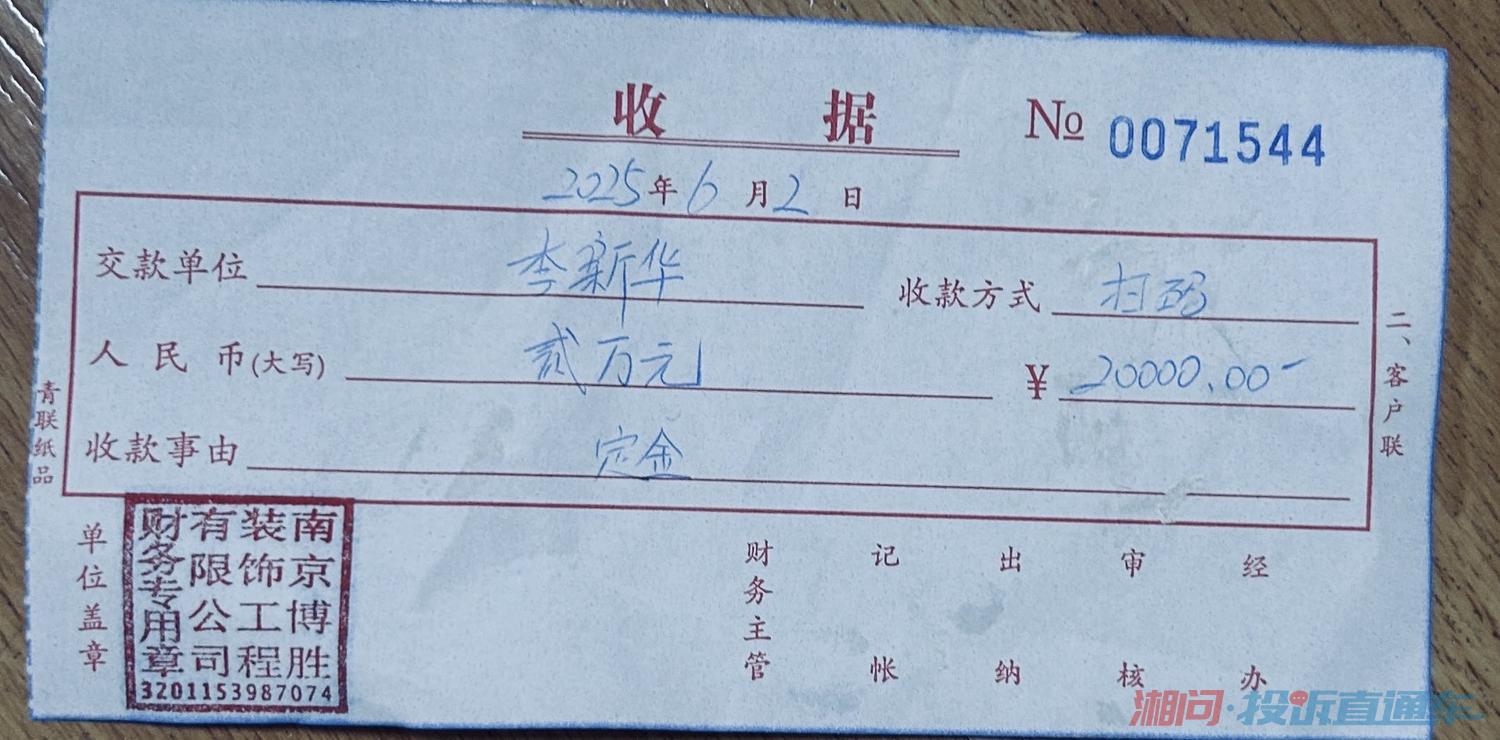 收 据
№ 0071544
2025年6月2日
交款单位 李新华 收款方式 扫码
人民币(大写) 贰万元 ¥ 20000.00-
收款事由 定金
二、客户联
青联纸品
单位盖章
南京博胜装饰工程有限公司财务专用章
3201153987074
财务主管 记帐 出纳 审核 经办
湘问·投诉直通车